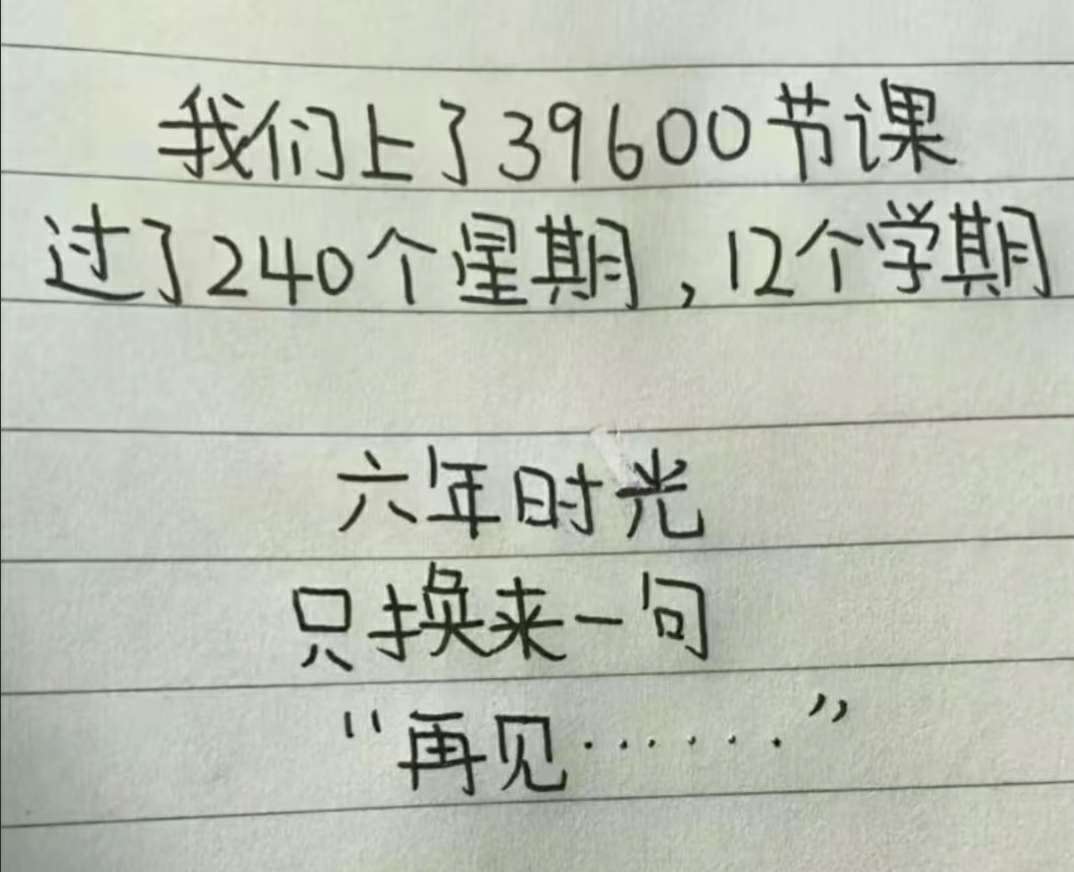 我们上了39600节课
过了240个星期，12个学期
六年时光
只换来一句
“再见……”